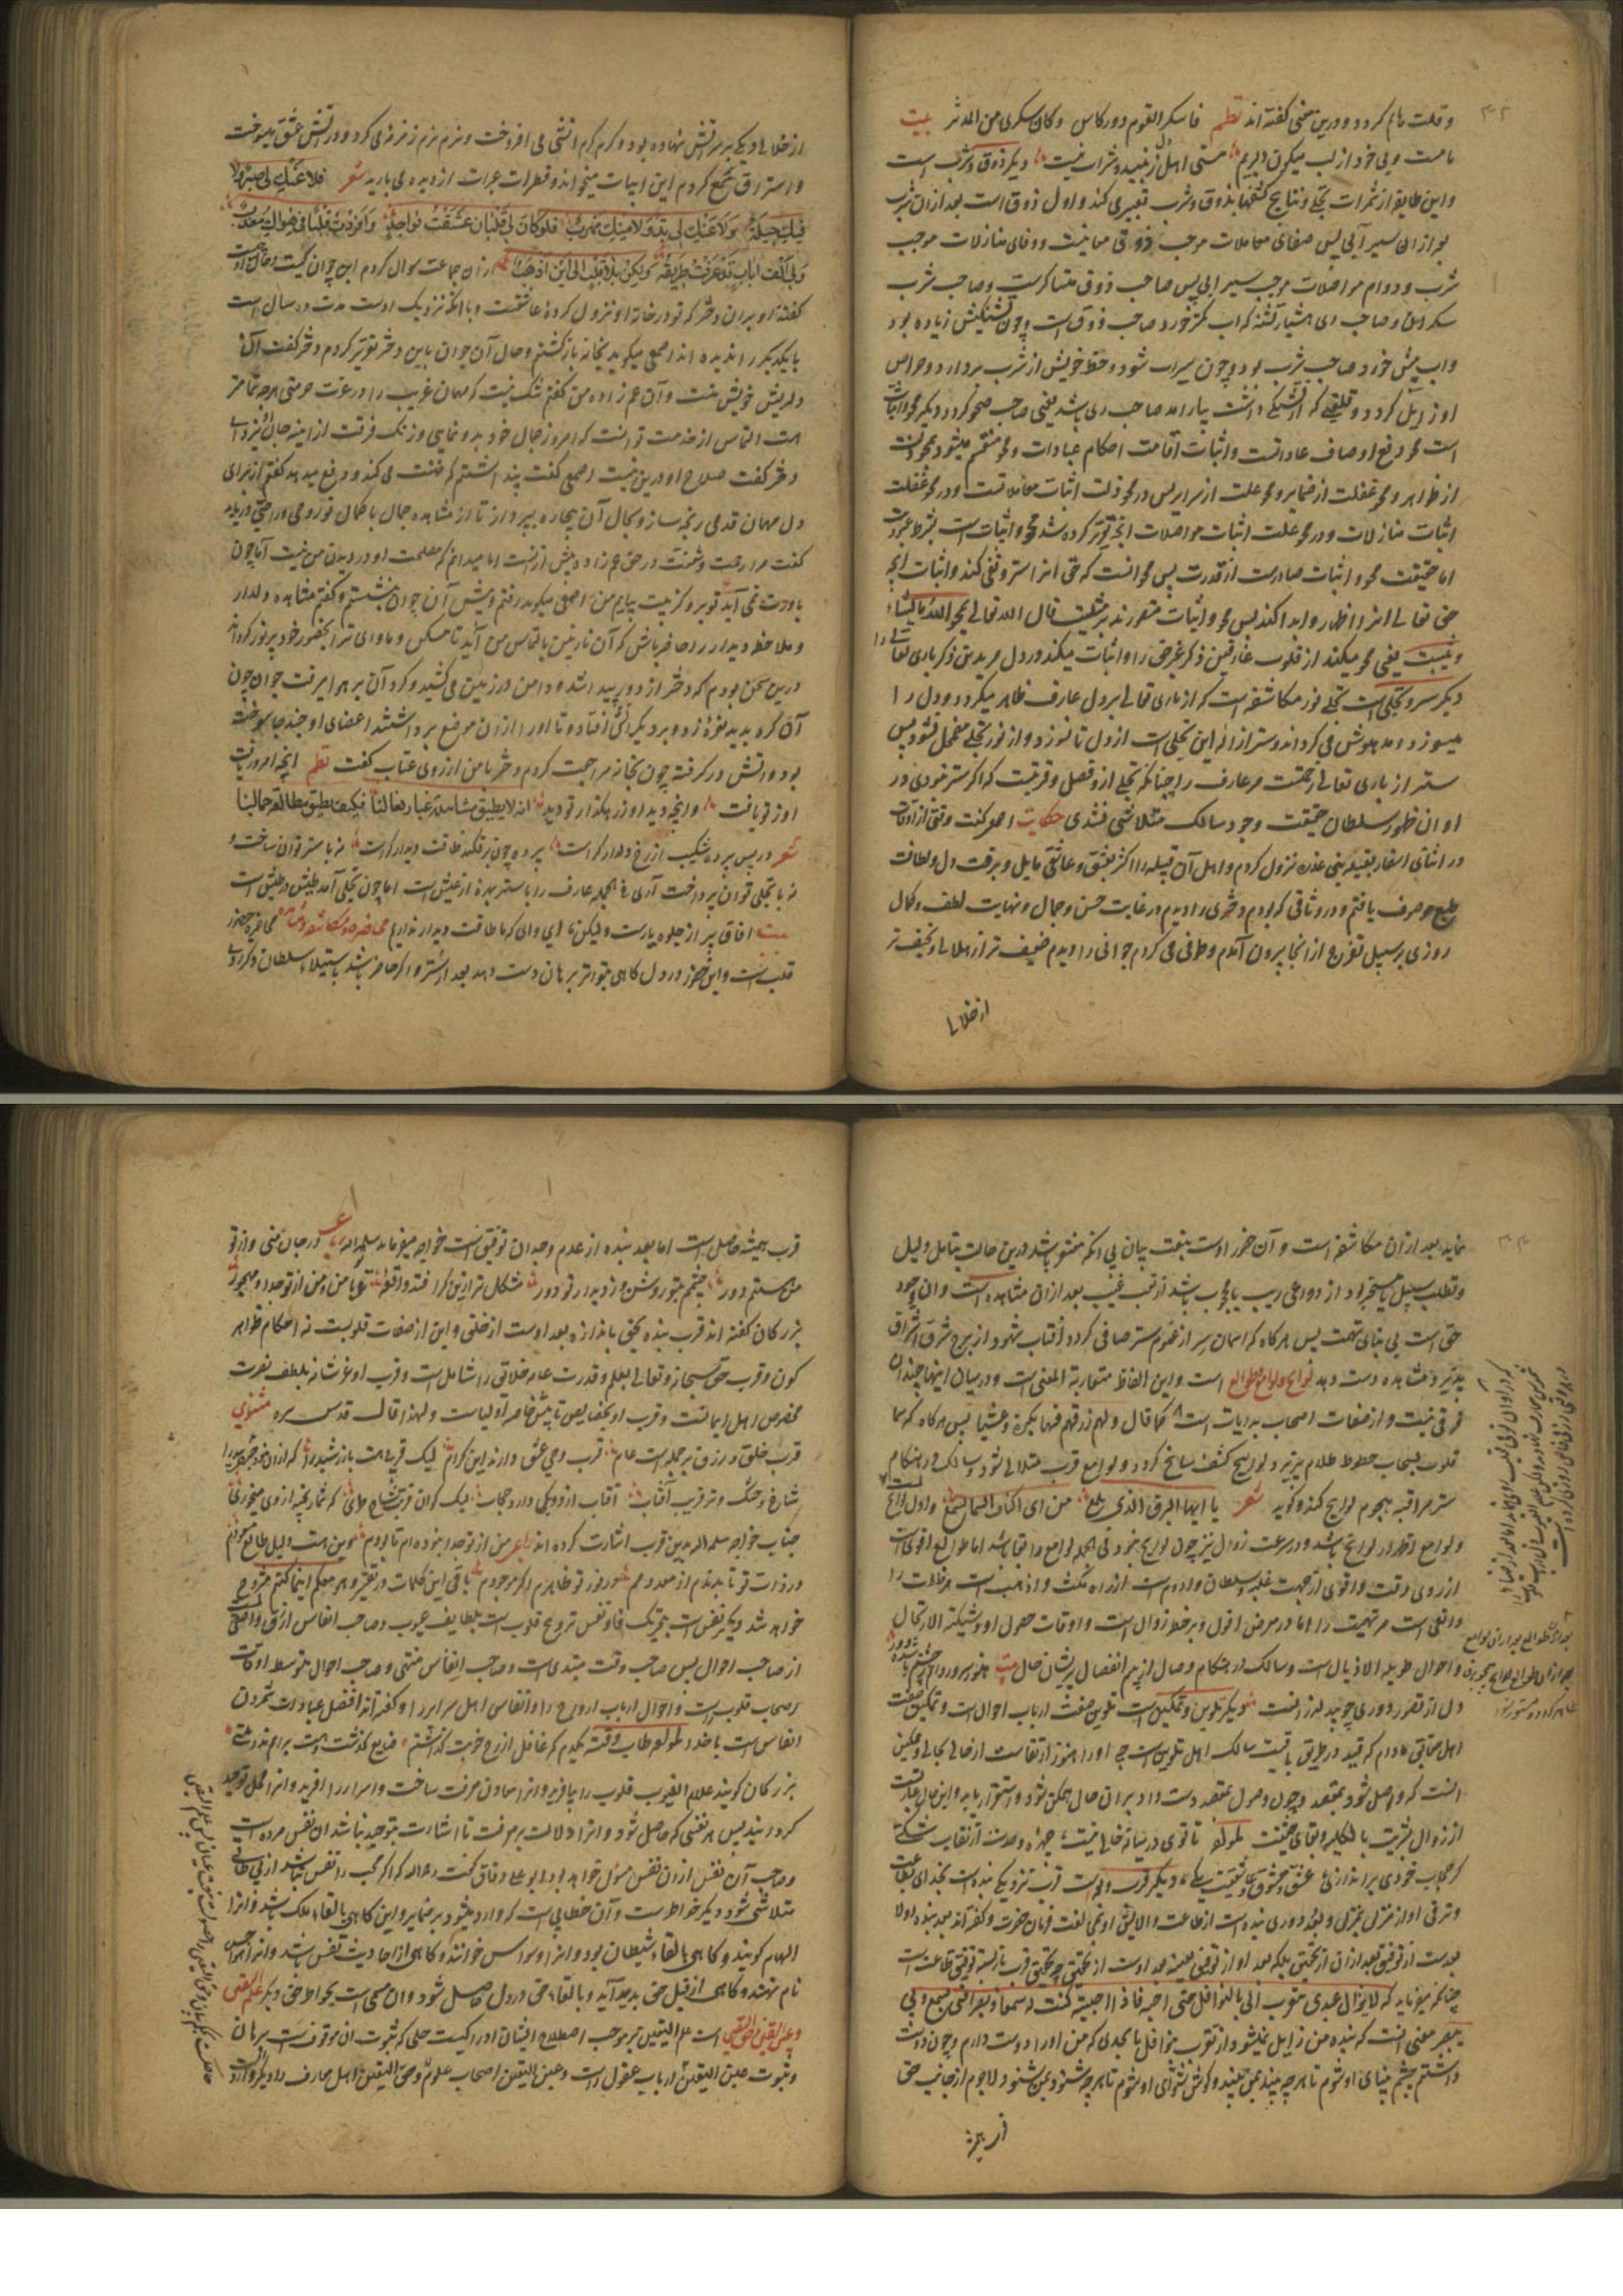 ۳۲
و قلت نام کردد و درین معنی گفته اند نظم فاسکر القوم دور کاس وکان سکری من المدثر بیت
ما مست ولی خود از لب میگون دلبریم مستی اهل دل ز نبید و شراب نیست دیکر ذوق و شرب است
و این طایفه از ثمرات تجلی و نتایج کشفها بذوق و شرب تعبیر می کنند و اول ذوق است بعد ازان شرب
بعد ازان سیرابی پس صفای معاملات موجب ذوق معانیست و وفای منازلات موجب
شرب و دوام مواصلات موجب سیرابی پس صاحب ذوق متساکرست و صاحب شرب
سکران و صاحب ری هشیار تشنه که اب کمتر خورد صاحب ذوق است و چون تشنکیش زیاده بود
و اب بیش خورد صاحب شرب بود و چون سیراب شود و حظ خویش از شرب بردارد و حواس
است محو رفع اوصاف عادتست و اثبات اقامت احکام عبادات و محو منقسم میشود بمحو زلت
از ظواهر و محو غفلت از ضمایر و محو علت از سرایر پس در محو زلت اثبات معاملاتست و در محو غفلت
اثبات منازلات و در محو علت اثبات مواصلات انچه تقریر کرده شد محو و اثبات است بشرط عبودیت
اما حقیقت محو و اثبات صادرست از قدرت پس محو انست که حق انرا ستر و نفی کند و اثبات انچه
حق تعالی انرا اظهار و ابدا کند پس محو و اثبات مقصورند بر مشیت قال الله تعالی یمحو الله ما یشاء
و یثبت یعنی محو میکند از قلوب عارفین ذکر غیر حق را و اثبات میکند در دل مریدین ذکر باری تعالی را
دیکر ستر و تجلی است تجلی نور مکاشفه است که از باری تعالی بر دل عارف ظاهر میکردد و دل را
میسوزد و مدهوش می کرداند و ستر ازاله این تجلی است از دل تا نسوزد و از نور تجلی مضمحل نشود پس
ستر از باری تعالی رحمتست مر عارف را چنانکه تجلی از و فضل و قربتست که اکر ستر نبودی در
اوان ظهور سلطان حقیقت وجود سالک متلاشی شدی حکایت اصمعی کفت وقتی از اوقات
در اثنای اسفار بقبیله بنی عذره نزول کردم و اهل آن قبیله را اکثر بعشق و عاشقی مایل و برقت دل و لطافت
طبع موصوف یافتم و در وثاقی که بودم دختری را دیدم در غایت حسن و جمال و نهایت لطف و کمال
روزی بر سبیل تفرج از انجا بیرون آمدم و طوفی می کردم جوانی را دیدم ضعیف تر از هلالی و نحیف تر
از خلالی
از خلالی دیک بر سر آتش نهاده بود و کرم کرم آتش می افروخت و نرم نرم زمزمه می کرد و در آتش عشق میسوخت
و استراق سمع کردم این ابیات میخواند و قطرات عبرات از دیده می بارید شعر فلا عنک لی صبر ولا
فیک حیلة ولا عنک لی بد ولا منک مهرب فلو کان لی قلبان عشت بواحد وافردت قلبا فی هواک یعذب
ولی الف باب قد عرفت طریقه ولکن بلا قلب الی این اذهب ازان جماعت سوال کردم این جوان کیست و حال او چیست
کفتند او بران دختر که تو در خانه او نزول کرده عاشقست و با انکه نزدیک اوست مدت ده سال است
یکدیکر را ندیده اند اصمعی میکوید بخانه باز کشتم و حال آن جوان با این دختر تقریر کردم دختر کفت آن
دلریش خویش منست و آن عم زاده من کفتم شک نیست که مهمان غریب را در عرب حرمتی هر چه تمامتر
است التماس از خدمت تو انست که امروز جمال خود بدو نمایی و زنک فرقت از اینه جان او بزدایی
دختر کفت صلاح او درین نیست اصمعی کفت پنداشتم که ضنت می کند و دفع میدهد کفتم از برای
دل مهمان قدمی رنجه ساز و بحال آن بیچاره بپرداز تا از مشاهده جمال با کمال تو روحی و راحتی در یابد
کفت مرا رحمت و شفقت در حق عم زاده بیش ازانست اما میدانم که مصلحت او در دیدن من نیست اما چون
باورت نمی آید تو برو که منت بیایم من اصمعی میکوید رفتم و پیش آن جوان بنشستم و کفتم مشاهده دلدار
و ملاحظه دیدار را حاضر باش که آن نازنین بالتماس من آید تا مسکن و ماوای ترا بحضور خود پر نور کرداند
درین سخن بودم که دختر از دور پیدا شد و دامن در زمین می کشید و کرد آن بر هوا میرفت جوان چون
آن کرد بدید نعره زد و بر دیک آتش افتاد و تا او را ازان موضع برداشتند اعضای او چند جا سوخته
بود و آتش در کرفته چون بخانه مراجعت کردم دختر با من از روی عتاب کفت نظم انچه امروز یافت
اوز تو یافت و انچه دید او زرهکذار تو دید انه لا یطیق مشاهدة غبار نعالنا فکیف یطیق مطالعة جمالنا
شعر در پس پرده شکیب از رخ دلدار کراست پرده چون بر فکند طاقت دیدار کراست نه با ستر توان ساخت و
نه با تجلی توان پرداخت آری فی الجمله عارف را با ستر بهره از عیش است اما چون تجلی آمد طیش در طیش است
بیت افاق پر از جلوه یارست ولیکن ای وای که ما طاقت دیدار نداریم محاضره و مکاشفه و مشاهده محاضره حضور
قلب است و این حضور در دل کاهی بتواتر برهان دست دهد بعد از ستر و اکر حاضر باشد باستیلاء سلطان ذکر روی
۳۳
نماید بعد ازان مکاشفه است و آن حضور اوست بنعت بیان بی انکه مفتقر باشد درین حالت بتامل دلیل
و تطلب سبیل یا مستجیر بود از دواعی ریب یا محجوب باشد از نعت غیب بعد ازان مشاهده است و ان وجود
حق است بی بقای تهمت پس هر کاه که اسمان سر از غیوم ستر صافی کردد و آفتاب شهود از برج شرف اشراق
پذیرد مشاهده دست دهد لوایح و لوامع و طوالع است و این الفاظ متقاربة المعنی است و درمیان اینها چندان
فرقی نیست و از صفات اصحاب بدایات است کما قال ولهم رزقهم فیها بکرة وعشیا پس هر کاه که سما
قلوب بسحاب حظوظ ظلام پذیرد لوایح کشف سانح کردد و لوامع قرب متلالی شود و سالک در هنکام
ستر مراقب هجوم لوایح کردد و کوید شعر یا ایها البرق الذی یلمع من ای اکناف السما تسطع و اول لوایح است
و لوامع اظهر از لوایح باشد و در سرعت زوال نیز چون لوایح نبود فی الجمله لوامع را بقا باشد اما طوالع اقوی است
از روی وقت و اقوی از جهت غلبه و سلطان و ادوم است از راه مکث و اذهب است مر ظلمات را
و انفی است مر تهمت را اما در معرض افول و بر خطر زوال است و اوقات حصول او وشیکة الارتحال
و احوال طویلة الاذیال است و سالک در هنکام وصال از بیم انفصال پریشان حال بیت
دل از تفکر دوری چو بید لرزانست دیکر تلوین و تمکین است تلوین صفت ارباب احوال است و تمکین صفت
اهل حقایق مادام که قید در طریق باقیست سالک اهل تلوین است چه او را هنوز ارتقاست از حالی بحالی و متمکن
انست که واصل شود بمقصد و چون وصول بمقصد دست داد بران حال متمکن شود و استقرار یابد و این حال عبارتست
از زوال بشریت بالکلیه و بقای حقیقت لمولفه تا تو در میانه خالی نیست چهره وحدت از نقاب شکی
کر حجاب خودی براندازی عشق و معشوق و عاشقست یکی دیکر قرب و بعدست قرب نزدیکی بنده است بخدای بطاعت
و ترقی او از منزل بمنزل و بعد دوری بنده است از طاعت و الایش او بمخالفت فرمان حضرت
بعدست از توفیق بعد ازان از تحقیق بلکه بعد او از توفیق بعینه بعد اوست از تحقیق
چنانکه میفرماید که لا یزال عبدی یتقرب الی بالنوافل حتی احبه فاذا احببته کنت له سمعا و بصرا فبی یسمع و بی
یبصر معنی انست که بنده من زایل نمیشود از تقرب بنوافل تا بحدی که من او را دوست دارم و چون دوست
داشتم چشم بینای او شوم تا هر چه بیند بمن بیند و کوش شنوای او شوم تا هر چه شنود بمن شنود لاجرم از جانب حق
قرب همیشه حاصل است اما بعد بنده از عدم وجدان توفیق است خواجه میفرماید سلمه الله رباعی در جان منی و از تو
من هستم دور چشمم بتو روشن وز دیدار تو دور مشکل تر ازین کرا فتد واقعه تو با من و من از تو جدا و مهجور
بزرکان کفته اند قرب بنده بحق باندازه بعد اوست از خلق و این از صفات قلوبست نه احکام ظواهر
کون و قرب حق سبحانه و تعالی بعلم و قدرت عامه خلایق را شامل است و قرب او عز شانه بلطف و نصرت
مخصوص اهل ایمانست و قرب او بخصایص تانیس خاصه اولیاست و لهذا قال قدس سره مثنوی
قرب خلق و رزق بر جمله است عام قرب وحی عشق دارند این کرام
شاخ خشک و تر قریب آفتاب آفتاب از هر دو کی دارد حجاب
جناب خواجه سلمه الله بدین قرب اشارت کرده اند رباعی من از تو جدا نبوده ام تا بودم
در ذات تو نا پدیدم ار معدومم در نور تو ظاهرم اکر موجودم باقی این کلمات در تقریر و هو معکم اینما کنتم مشروح
خواهد شد دیکر نفس است بتحریک فا و نفس ترویح قلوب است بلطایف غیوب و صاحب انفاس ارق و اصفی
از صاحب احوال پس صاحب وقت مبتدی است و صاحب انفاس منتهی و صاحب احوال متوسط اوقات
اصحاب قلوب راست و احوال ارباب ارواح را و انفاس اهل سرایر را و کفته اند افضل عبادات شمردن
انفاس است با خدا لمولفه طاب وقته یکدم که غافل از رخ خوبت کذاشتم
بزرکان کویند علام الغیوب قلوب را بیافرید و انرا معادن معرفت ساخت و اسرار را افرید و انرا محل توحید
کردانید پس هر نفسی که حاصل شود و انرا دلالت بر معرفت تا اشارت بتوحید نباشد ان نفس مرده است
و صاحب آن نفس ازان نفس مسئول خواهد بود ابو علی دقاق کفت رحمه الله که اکر محب را نفس نباشد از بی طاقتی
متلاشی شود دیکر خواطرست و آن خطابی است که وارد میشود بر ضمایر و این کاهی بالقاء ملک باشد و انرا
الهام کویند و کاهی بالقاء شیطان بود و انرا وسواس خوانند و کاهی از احادیث نفس باشد و انرا هواجس
نام نهند و کاهی از قبل حق پدید آید و بالقاء حق در دل حاصل شود و ان مسمی است بخواطر حق دیکر علم الیقین
و عین الیقین و حق الیقین است علم الیقین بر موجب اصطلاح ایشان ادراکیست جلی که ثبوت ان موقوفست ببرهان
و ثبوت علم الیقین ارباب عقول راست و عین الیقین اصحاب علوم و حق الیقین اهل معارف را دیکر واردست